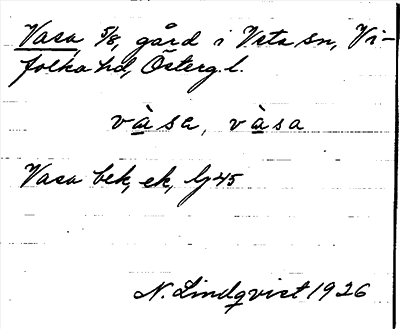 Vasa 5/8, gård i Vsta sn, Vi-
folka hd, Österg. l.
và̲sa, và̲sa
Vasa bek, ek, lj 45
N. Lindqvist 1926